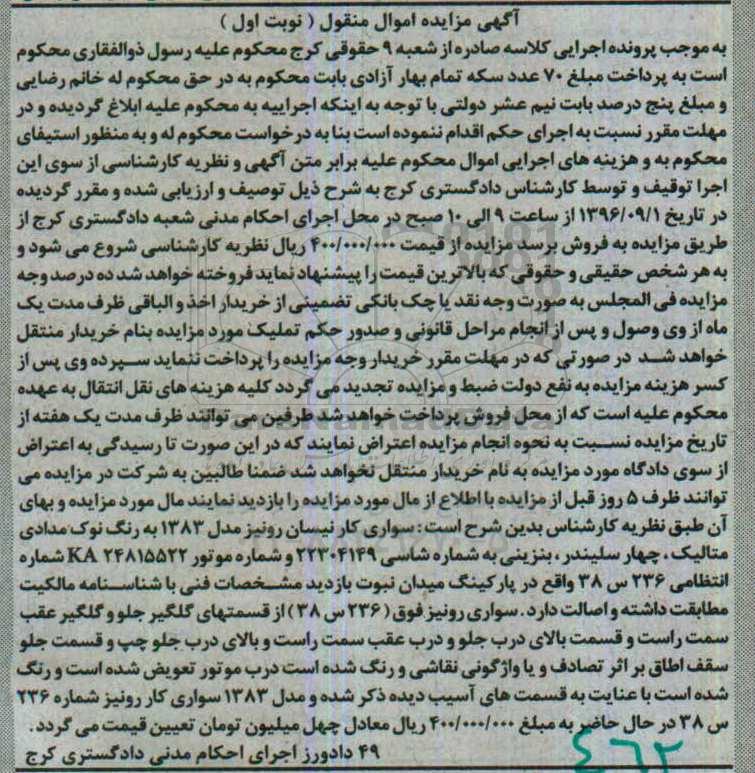 آگهی مزایده اموال منقول ( نوبت اول )
به موجب پرونده اجرایی کلاسه صادره از شعبه ۹ حقوقی کرج محکوم علیه رسول ذوالفقاری محکوم
است به پرداخت مبلغ ۷۰ عدد سکه تمام بهار آزادی بابت محکوم به در حق محکوم له خانم رضایی
و مبلغ پنج درصد بابت نیم عشر دولتی با توجه به اینکه اجراییه به محکوم علیه ابلاغ گردیده و در
مهلت مقرر نسبت به اجرای حکم اقدام ننموده است بنا به درخواست محکوم له و به منظور استیفای
محکوم به و هزینه های اجرایی اموال محکوم علیه برابر متن آگهی و نظریه کارشناسی از سوی این
اجرا توقیف و توسط کارشناس دادگستری کرج به شرح ذیل توصیف و ارزیابی شده و مقرر گردیده
در تاریخ ۱۳۹۶/۰۹/۱ از ساعت ۹ الی ۱۰ صبح در محل اجرای احکام مدنی شعبه دادگستری کرج از
طریق مزایده به فروش برسد مزایده از قیمت ۴۰۰/۰۰۰/۰۰۰ ریال نظریه کارشناسی شروع می شود و
به هر شخص حقیقی و حقوقی که بالاترین قیمت را پیشنهاد نماید فروخته خواهد شد ده درصد وجه
مزایده فی المجلس به صورت وجه نقد یا چک بانکی تضمینی از خریدار اخذ و الباقی ظرف مدت یک
ماه از وی وصول و پس از انجام مراحل قانونی و صدور حکم تملیک مورد مزایده بنام خریدار منتقل
خواهد شد در صورتی که در مهلت مقرر خریدار وجه مزایده را پرداخت ننماید سپرده وی پس از
کسر هزینه مزایده به نفع دولت ضبط و مزایده تجدید می گردد کلیه هزینه های نقل انتقال به عهده
محکوم علیه است که از محل فروش پرداخت خواهد شد طرفین می توانند ظرف مدت یک هفته از
تاریخ مزایده نسبت به نحوه انجام مزایده اعتراض نمایند که در این صورت تا رسیدگی به اعتراض
از سوی دادگاه مورد مزایده به نام خریدار منتقل نخواهد شد ضمنا طالبین به شرکت در مزایده می
توانند ظرف ۵ روز قبل از مزایده با اطلاع از مال مورد مزایده را بازدید نمایند مال مورد مزایده و بهای
آن طبق نظریه کارشناس بدین شرح است : سواری کار نیسان رونیز مدل ۱۳۸۳ به رنگ نوک مدادی
متالیک ، چهار سلیندر ، بنزینی به شماره شاسی ۲۲۳۰۴۱۴۹ و شماره موتور KA ۲۴۸۱۵۵۲۲ شماره
انتظامی ۲۳۶ س ۳۸ واقع در پارکینگ میدان نبوت بازدید مشخصات فنی با شناسنامه مالکیت
مطابقت داشته و اصالت دارد . سواری رونیز فوق ( ۲۳۶ س ۳۸ ) از قسمتهای گلگیر جلو و گلگیر عقب
سمت راست و قسمت بالای درب جلو و درب عقب سمت راست و بالای درب جلو چپ و قسمت جلو
سقف اطاق بر اثر تصادف و یا واژگونی نقاشی و رنگ شده است درب موتور تعویض شده است و رنگ
شده است با عنایت به قسمت های آسیب دیده ذکر شده و مدل ۱۳۸۳ سواری کار رونیز شماره ۲۳۶
س ۳۸ در حال حاضر به مبلغ ۴۰۰/۰۰۰/۰۰۰ ریال معادل چهل میلیون تومان تعیین قیمت می گردد .
۴۹ دادورز اجرای احکام مدنی دادگستری کرج
۴۶۲